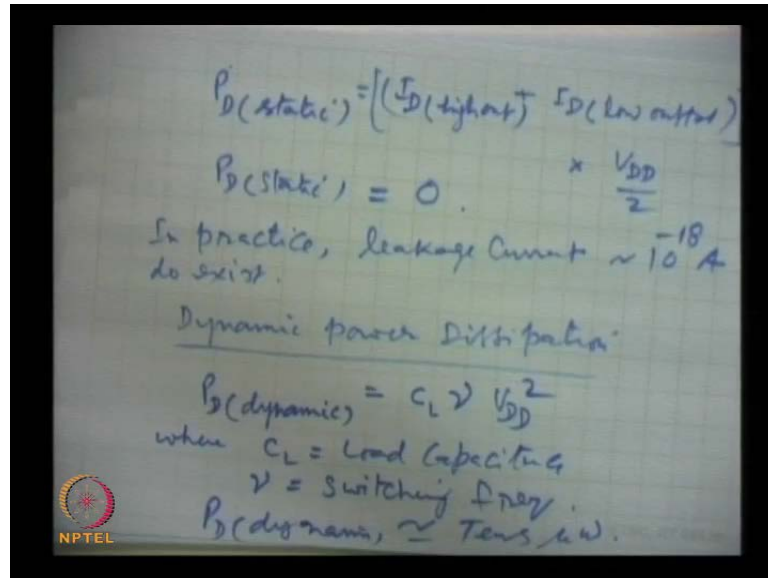 P_D(static) = [(I_D(highout) + I_D(low output)
× V_DD/2
P_D(static) = 0.
In practice, leakage Current ~ 10^-18 A
do exist.
Dynamic power Dissipation
P_D(dynamic) = C_L ν V_DD^2
where C_L = Load Capacitance
ν = Switching freq.
P_D(dynamic) ≃ Tens μW.
NPTEL